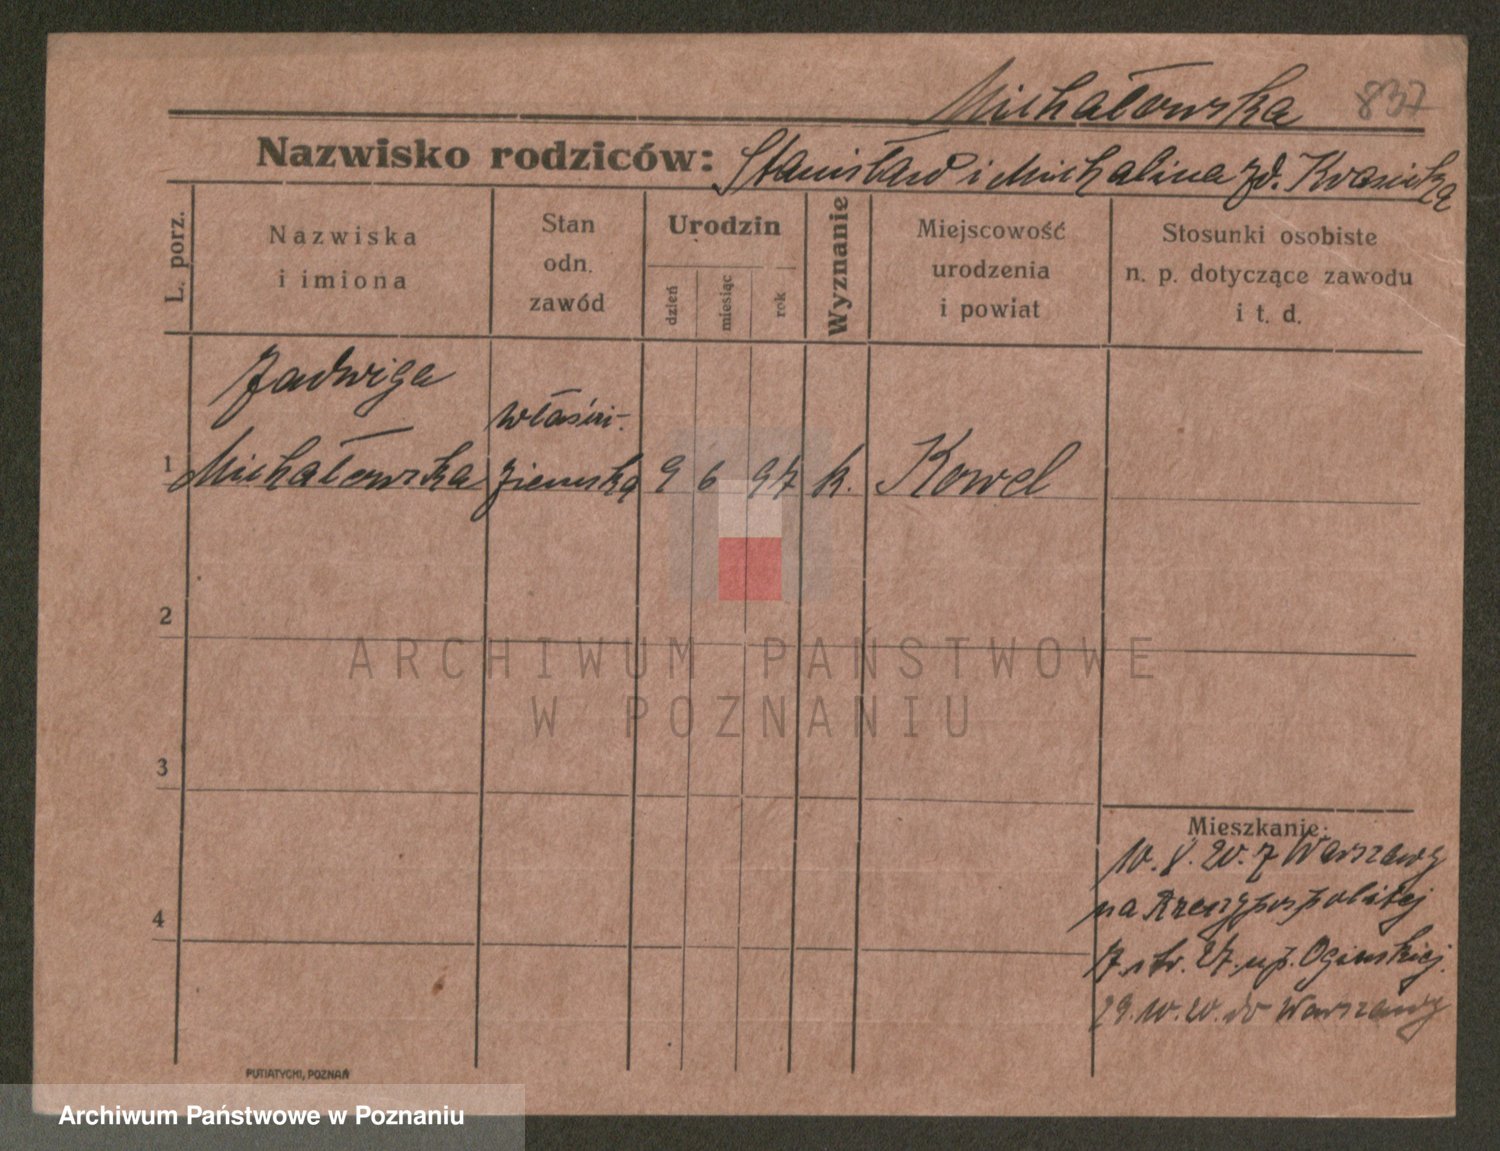 Michałowska 837
Nazwisko rodziców: Stanisław i Michalina zd. Krasicka
L. porz.
Nazwiska
i imiona
Stan
odn.
zawód
Urodzin
dzień
miesiąc
rok
Wyznanie
Miejscowość
urodzenia
i powiat
Stosunki osobiste
n. p. dotyczące zawodu
i t. d.
Jadwiga
właści-
1 Michałowska ziemska 9 6 97 k. Kowel
2
ARCHIWUM PAŃSTWOWE
W POZNANIU
3
Mieszkanie:
10.8.20. z Warszawy
na Rzeczypospolitej
4
7 str. 27. up. Ogińskiej.
29.10.20. do Warszawy
PUTIATYCKI, POZNAŃ
Archiwum Państwowe w Poznaniu